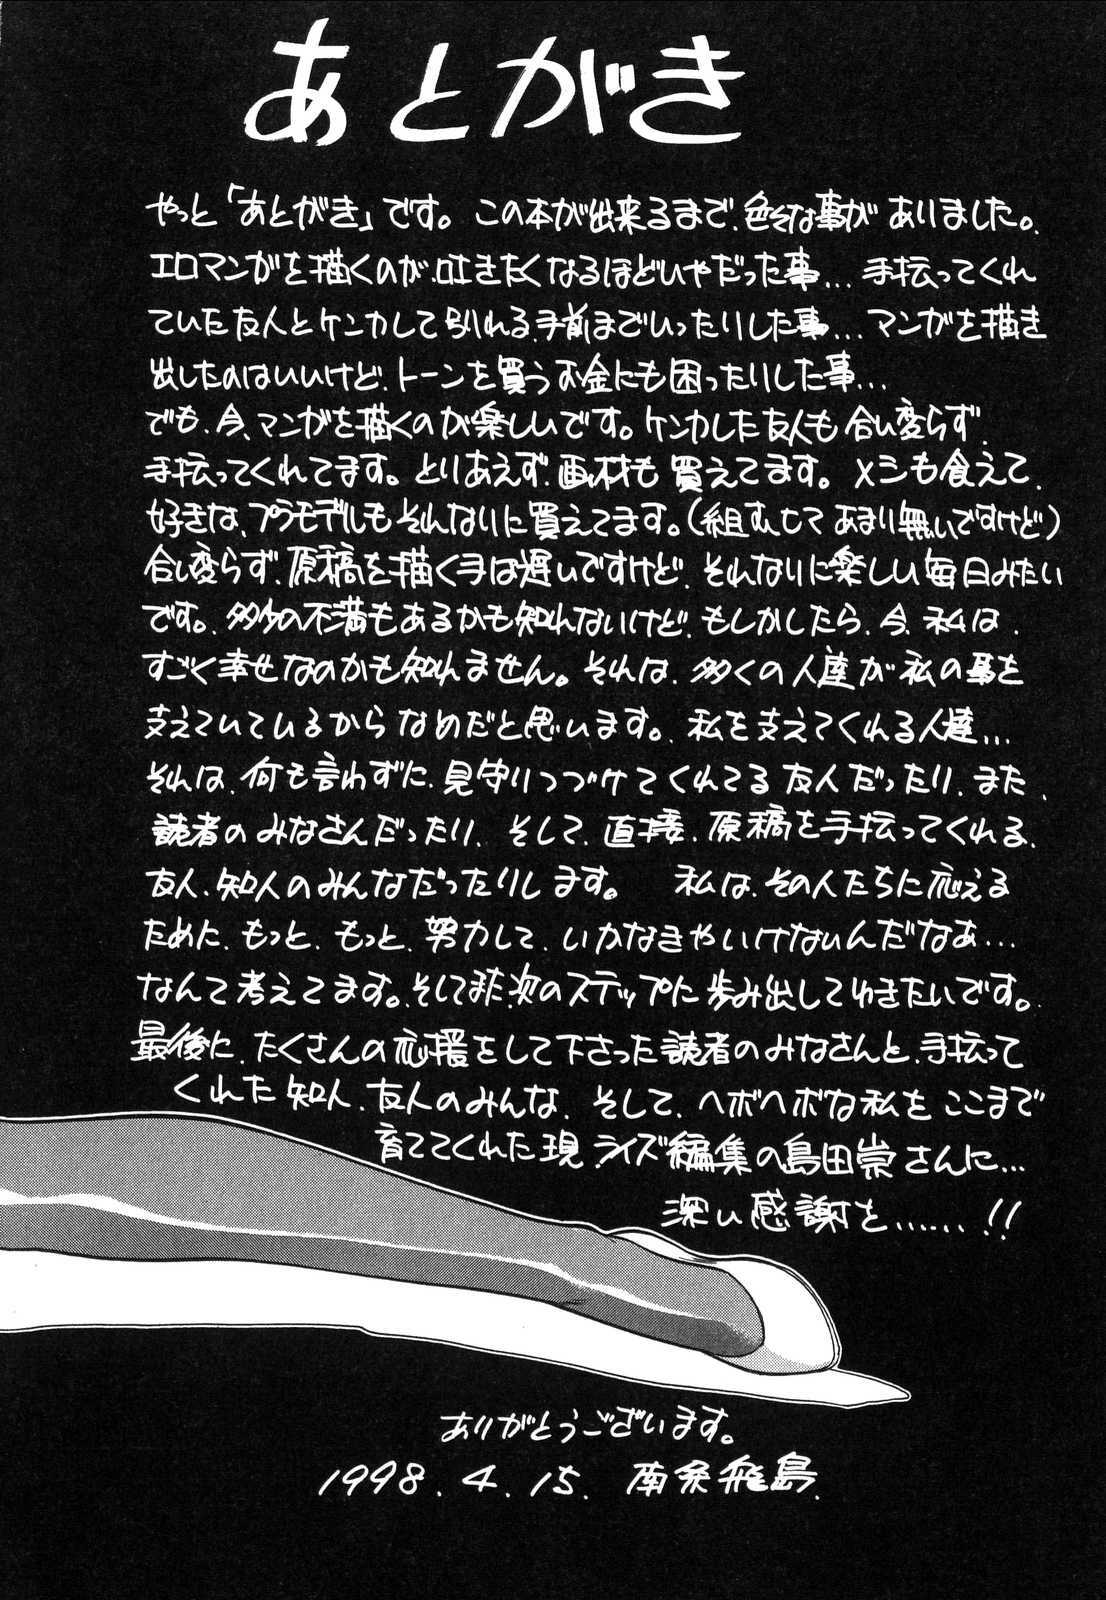 あとがき
やっと「あとがき」です。この本が出来るまで、色々な事がありました。
エロマンガを描くのが、吐きたくなるほどいやだった事…手伝ってくれ
ていた友人とケンカして別れる、手前までいったりした事…マンガを描き
出したのはいいけど、トーンを買うお金にも困ったりした事…
でも、今、マンガを描くのが楽しいです。ケンカした友人も合い変らず、
手伝ってくれてます。とりあえず、画材も買えてます。メシも食えて、
好きな、プラモデルもそれなりに買えてます。(組むヒマあまり無いですけど)
合い変らず、原稿を描く手は遅いですけど、それなりに楽しい毎日みたい
です。多少の不満もあるかも知れないけど、もしかしたら、今、私は、
すごく幸せなのかも知れません。それは、多くの人達が私の事を
支えていているからなめだと思います。私を支えてくれる人達…
それは、何も言わずに、見守りつづけてくれてる友人だったり、また、
読者のみなさんだったり、そして、直接、原稿を手伝ってくれる、
友人、知人のみんなだったりします。　私は、その人たちに応える
ために、もっと、もっと、努力して、いかなきゃいけないんだなぁ…
なんて考えてます。そしてまた次のステップに歩み出してゆきたいです。
最後に、たくさんの応援をして下さった読者のみなさんと、手伝って
くれた知人、友人のみんな、そして、ヘボヘボな私をここまで
育ててくれた現、ライズ編集の島田崇さんに…
深い感謝を……!!
ありがとうございます。
1998.4.15. 南条飛鳥.